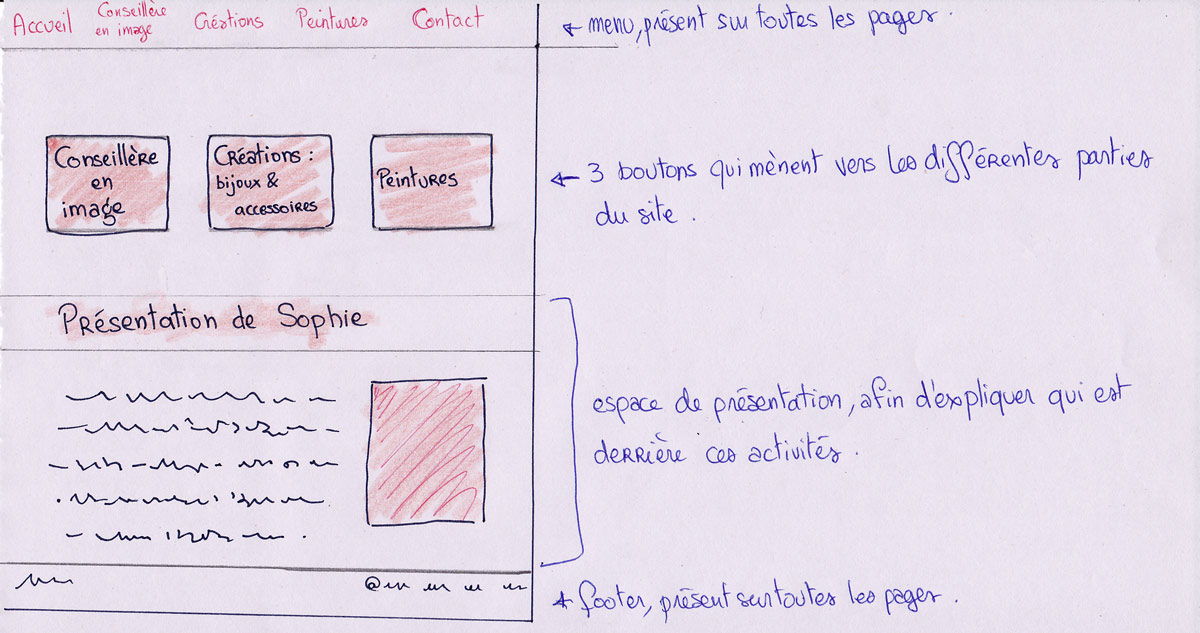 Accueil Conseillère en image Créations Peintures Contact
← menu, présent sur toutes les pages.
Conseillère
en
image
Créations :
bijoux &
accessoires
Peintures
← 3 boutons qui mènent vers les différentes parties
du site.
Présentation de Sophie
espace de présentation, afin d'expliquer qui est
derrière ces activités.
@
← footer, présent sur toutes les pages.